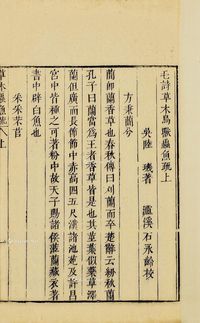 毛詩草木鳥獸蟲魚疏上
吳陸璣著 石永齡校
方秉蕳兮
蕳即蘭香草也春秋傳曰刈蘭而卒楚辭云紉秋蘭
孔子曰蘭當為王者香草皆是也其莖葉似藥草澤
蘭但廣而長節節中赤高四五尺漢諸池苑及許昌
宮中皆種之可著粉中故天子賜諸侯茝蘭藏衣著
書中辟白魚也
采采芣苢